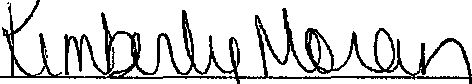 Kimberly Moran